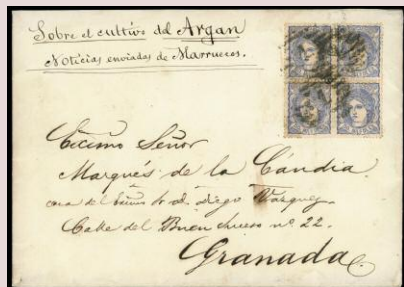 Sobre el cultivo del Argan
Noticias enviadas de Marruecos.
Excimo Señor
Marqués de la Candia.
casa del Excmo Sr. d. Diego Vazquez
Calle del Buen suceso nº 22.
Granada